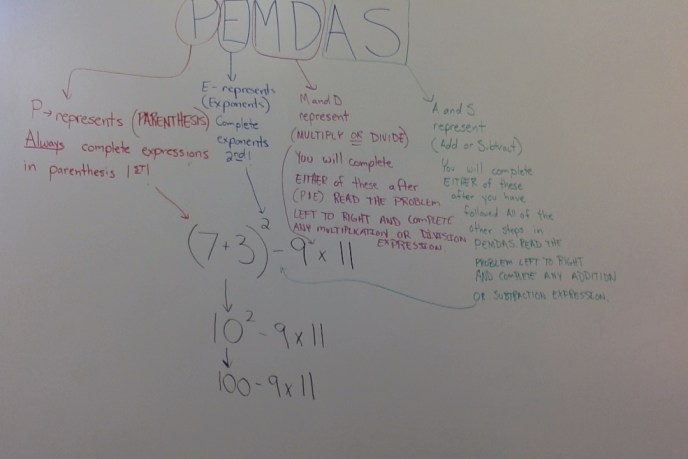 PEMDAS
P→ represents (PARENTHESIS)
Always complete expressions
in parenthesis 1ST!
E- represents
(Exponents)
Complete
exponents
2nd!
M and D
represent
(MULTIPLY OR DIVIDE)
You will complete
EITHER of these after
(P&E) READ THE PROBLEM
LEFT TO RIGHT AND COMPLETE
ANY MULTIPLICATION OR DIVISION
EXPRESSION
A and S
represent
(Add or Subtract)
You will complete
EITHER of these
after you have
followed All of the
other steps in
PEMDAS READ THE
PROBLEM LEFT TO RIGHT
AND COMPLETE ANY ADDITION
OR SUBTRACTION EXPRESSION.
(7+3)² - 9 x 11
10² - 9 x 11
100 - 9 x 11